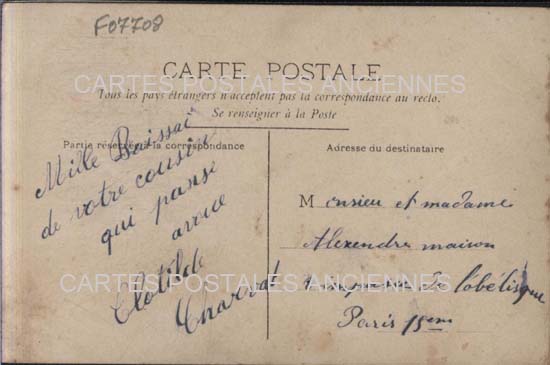 F07708
CARTE POSTALE
CARTES POSTALES ANCIENNES
Tous les pays étrangers n'acceptent pas la correspondance au recto.
Se renseigner à la Poste
Partie réservée à la correspondance
Mille Baissai
de votre cousin
qui panse
a vouce
Clotilde
Charvat
Adresse du destinataire
Monsieu et madame
Alexendre maison
impasse de l'obélisque
Paris 15em
CARTES POSTALES ANCIENNES